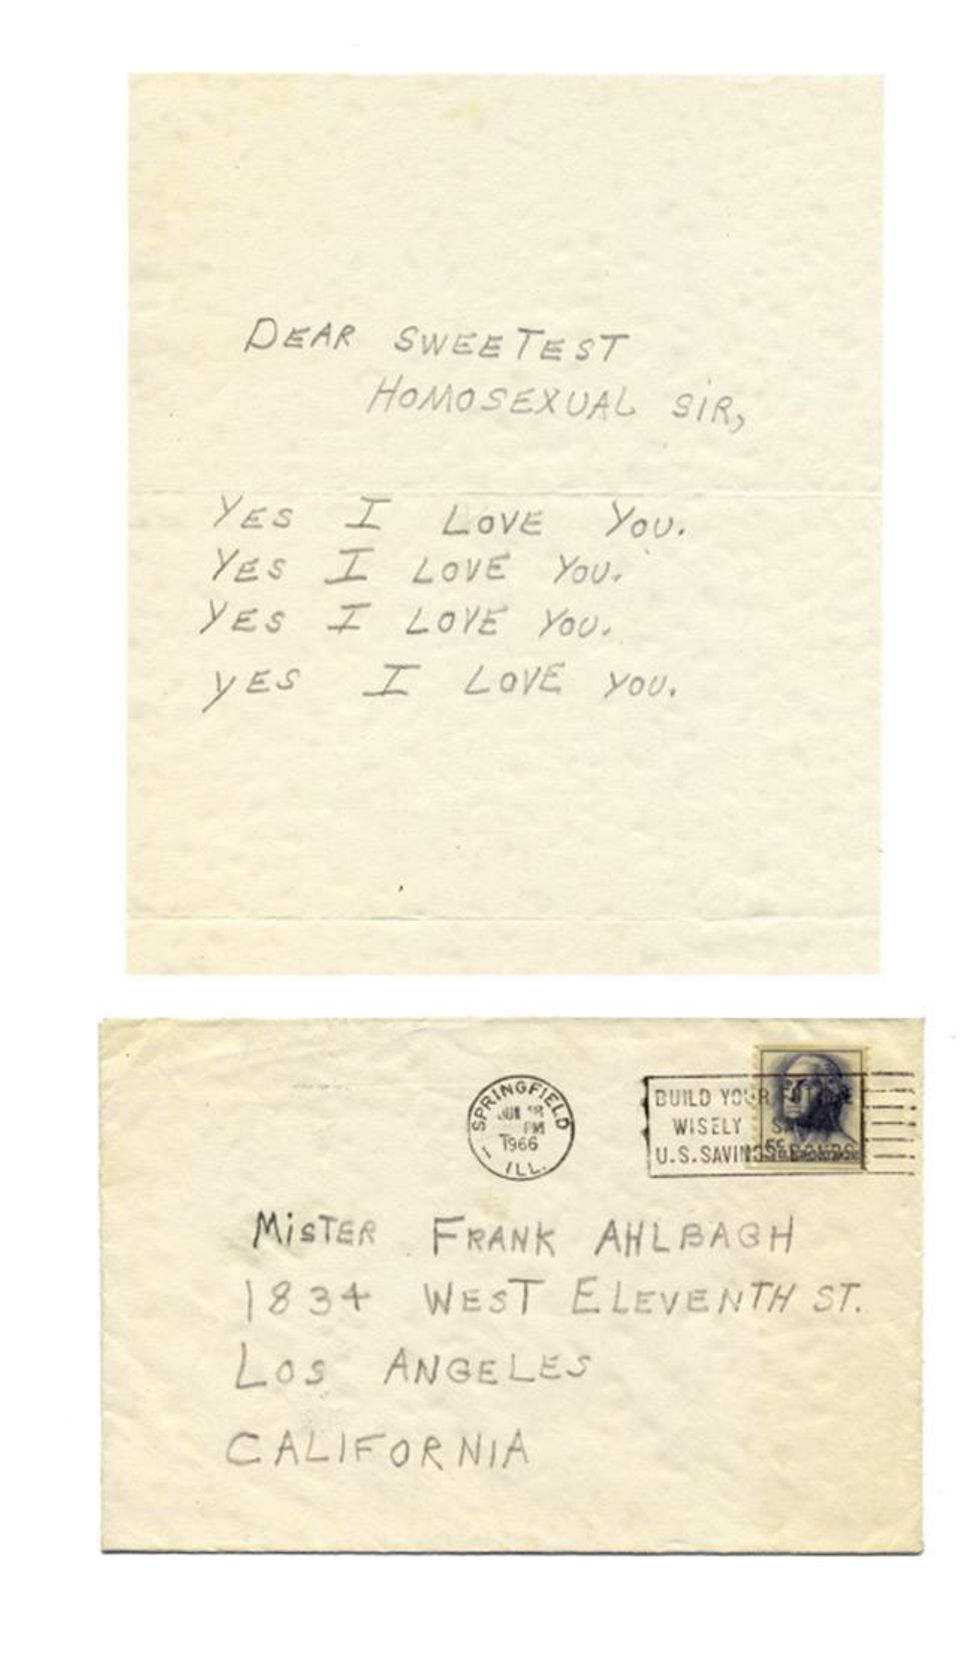 DEAR SWEETEST
HOMOSEXUAL SIR,
YES I LOVE YOU.
YES I LOVE YOU.
YES I LOVE YOU.
YES I LOVE YOU.
SPRINGFIELD
PM
1966
ILL.
BUILD YOUR FUTURE
WISELY
U.S. SAVINGS BONDS
5¢
MiSTER FRANK AHLBAGH
1834 WEST ELEVENTH ST.
LOS ANGELES
CALIFORNIA